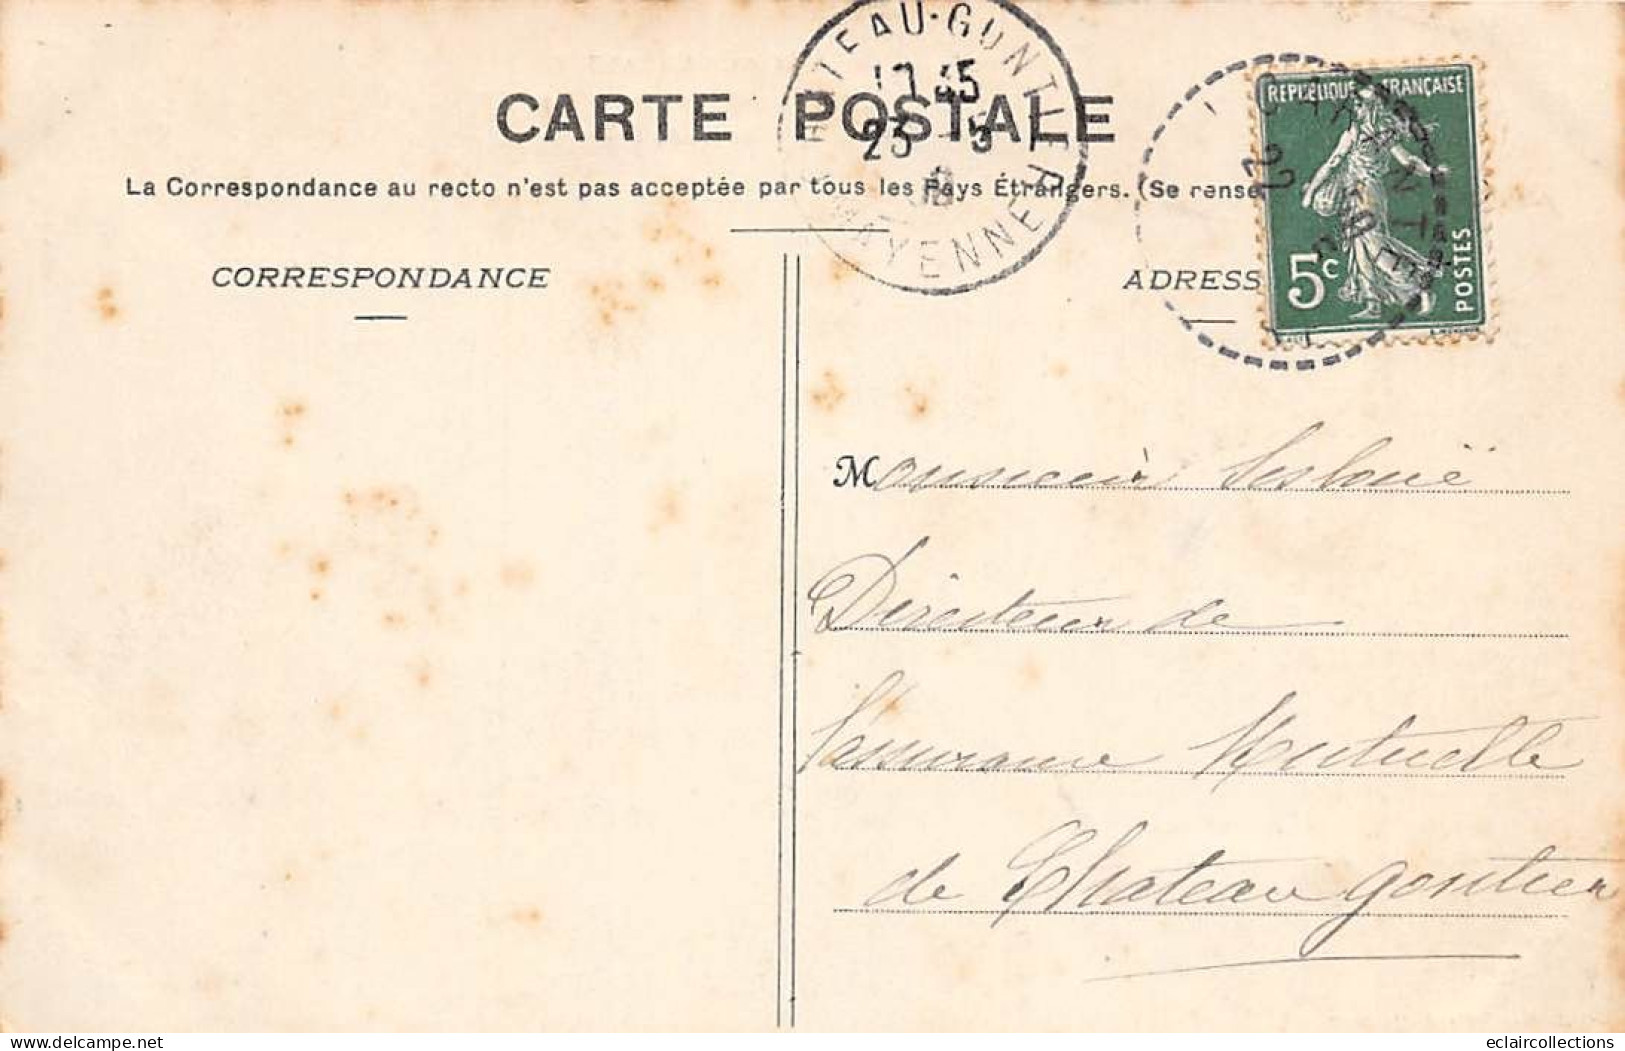 CARTE POSTALE
La Correspondance au recto n'est pas acceptée par tous les Pays Étrangers. (Se rense
CORRESPONDANCE
ADRESS
RÉPUBLIQUE FRANÇAISE
5c
POSTES
CHATEAU-GONTIER
17 45
23 -5
MAYENNE
Monsieur
Directeur de
l'assurance Mutuelle
de Chateau gontier
delcampe.net
eclaircollections